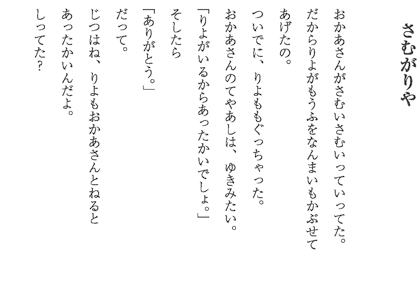 さむがりや
おかあさんがさむいさむいっていってた。
だからりよがもうふをなんまいもかぶせて
あげたの。
ついでに、りよももぐっちゃった。
おかあさんのてやあしは、ゆきみたい。
「りよがいるからあったかいでしょ。」
そしたら
「ありがとう。」
だって。
じつはね、りよもおかあさんとねると
あったかいんだよ。
しってた?